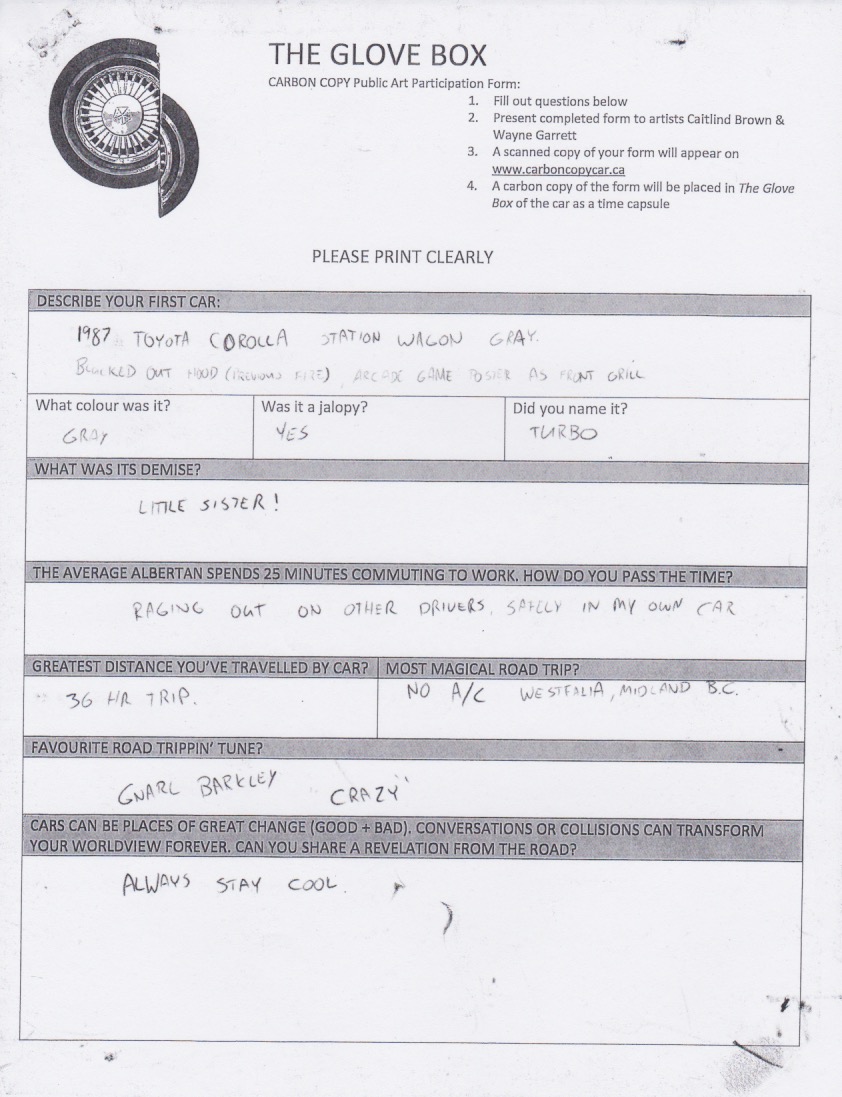 THE GLOVE BOX
CARBON COPY Public Art Participation Form:
1. Fill out questions below
2. Present completed form to artists Caitlind Brown &
Wayne Garrett
3. A scanned copy of your form will appear on
www.carboncopycar.ca
4. A carbon copy of the form will be placed in The Glove
Box of the car as a time capsule
PLEASE PRINT CLEARLY
DESCRIBE YOUR FIRST CAR:
1987 TOYOTA COROLLA STATION WAGON GRAY.
OUT HOOD (PREVIOUS FIRE), ARCADE GAME POSTER AS FRONT GRILL
What colour was it? Was it a jalopy? Did you name it?
GRAY YES TURBO
WHAT WAS ITS DEMISE?
LITTLE SISTER!
THE AVERAGE ALBERTAN SPENDS 25 MINUTES COMMUTING TO WORK. HOW DO YOU PASS THE TIME?
RAGING OUT ON OTHER DRIVERS, SAFELY IN MY OWN CAR
GREATEST DISTANCE YOU'VE TRAVELLED BY CAR? MOST MAGICAL ROAD TRIP?
36 HR TRIP. NO A/C WESTFALIA, MIDLAND B.C.
FAVOURITE ROAD TRIPPIN' TUNE?
GNARL BARKLEY CRAZY"
CARS CAN BE PLACES OF GREAT CHANGE (GOOD + BAD). CONVERSATIONS OR COLLISIONS CAN TRANSFORM
YOUR WORLDVIEW FOREVER. CAN YOU SHARE A REVELATION FROM THE ROAD?
ALWAYS STAY COOL.